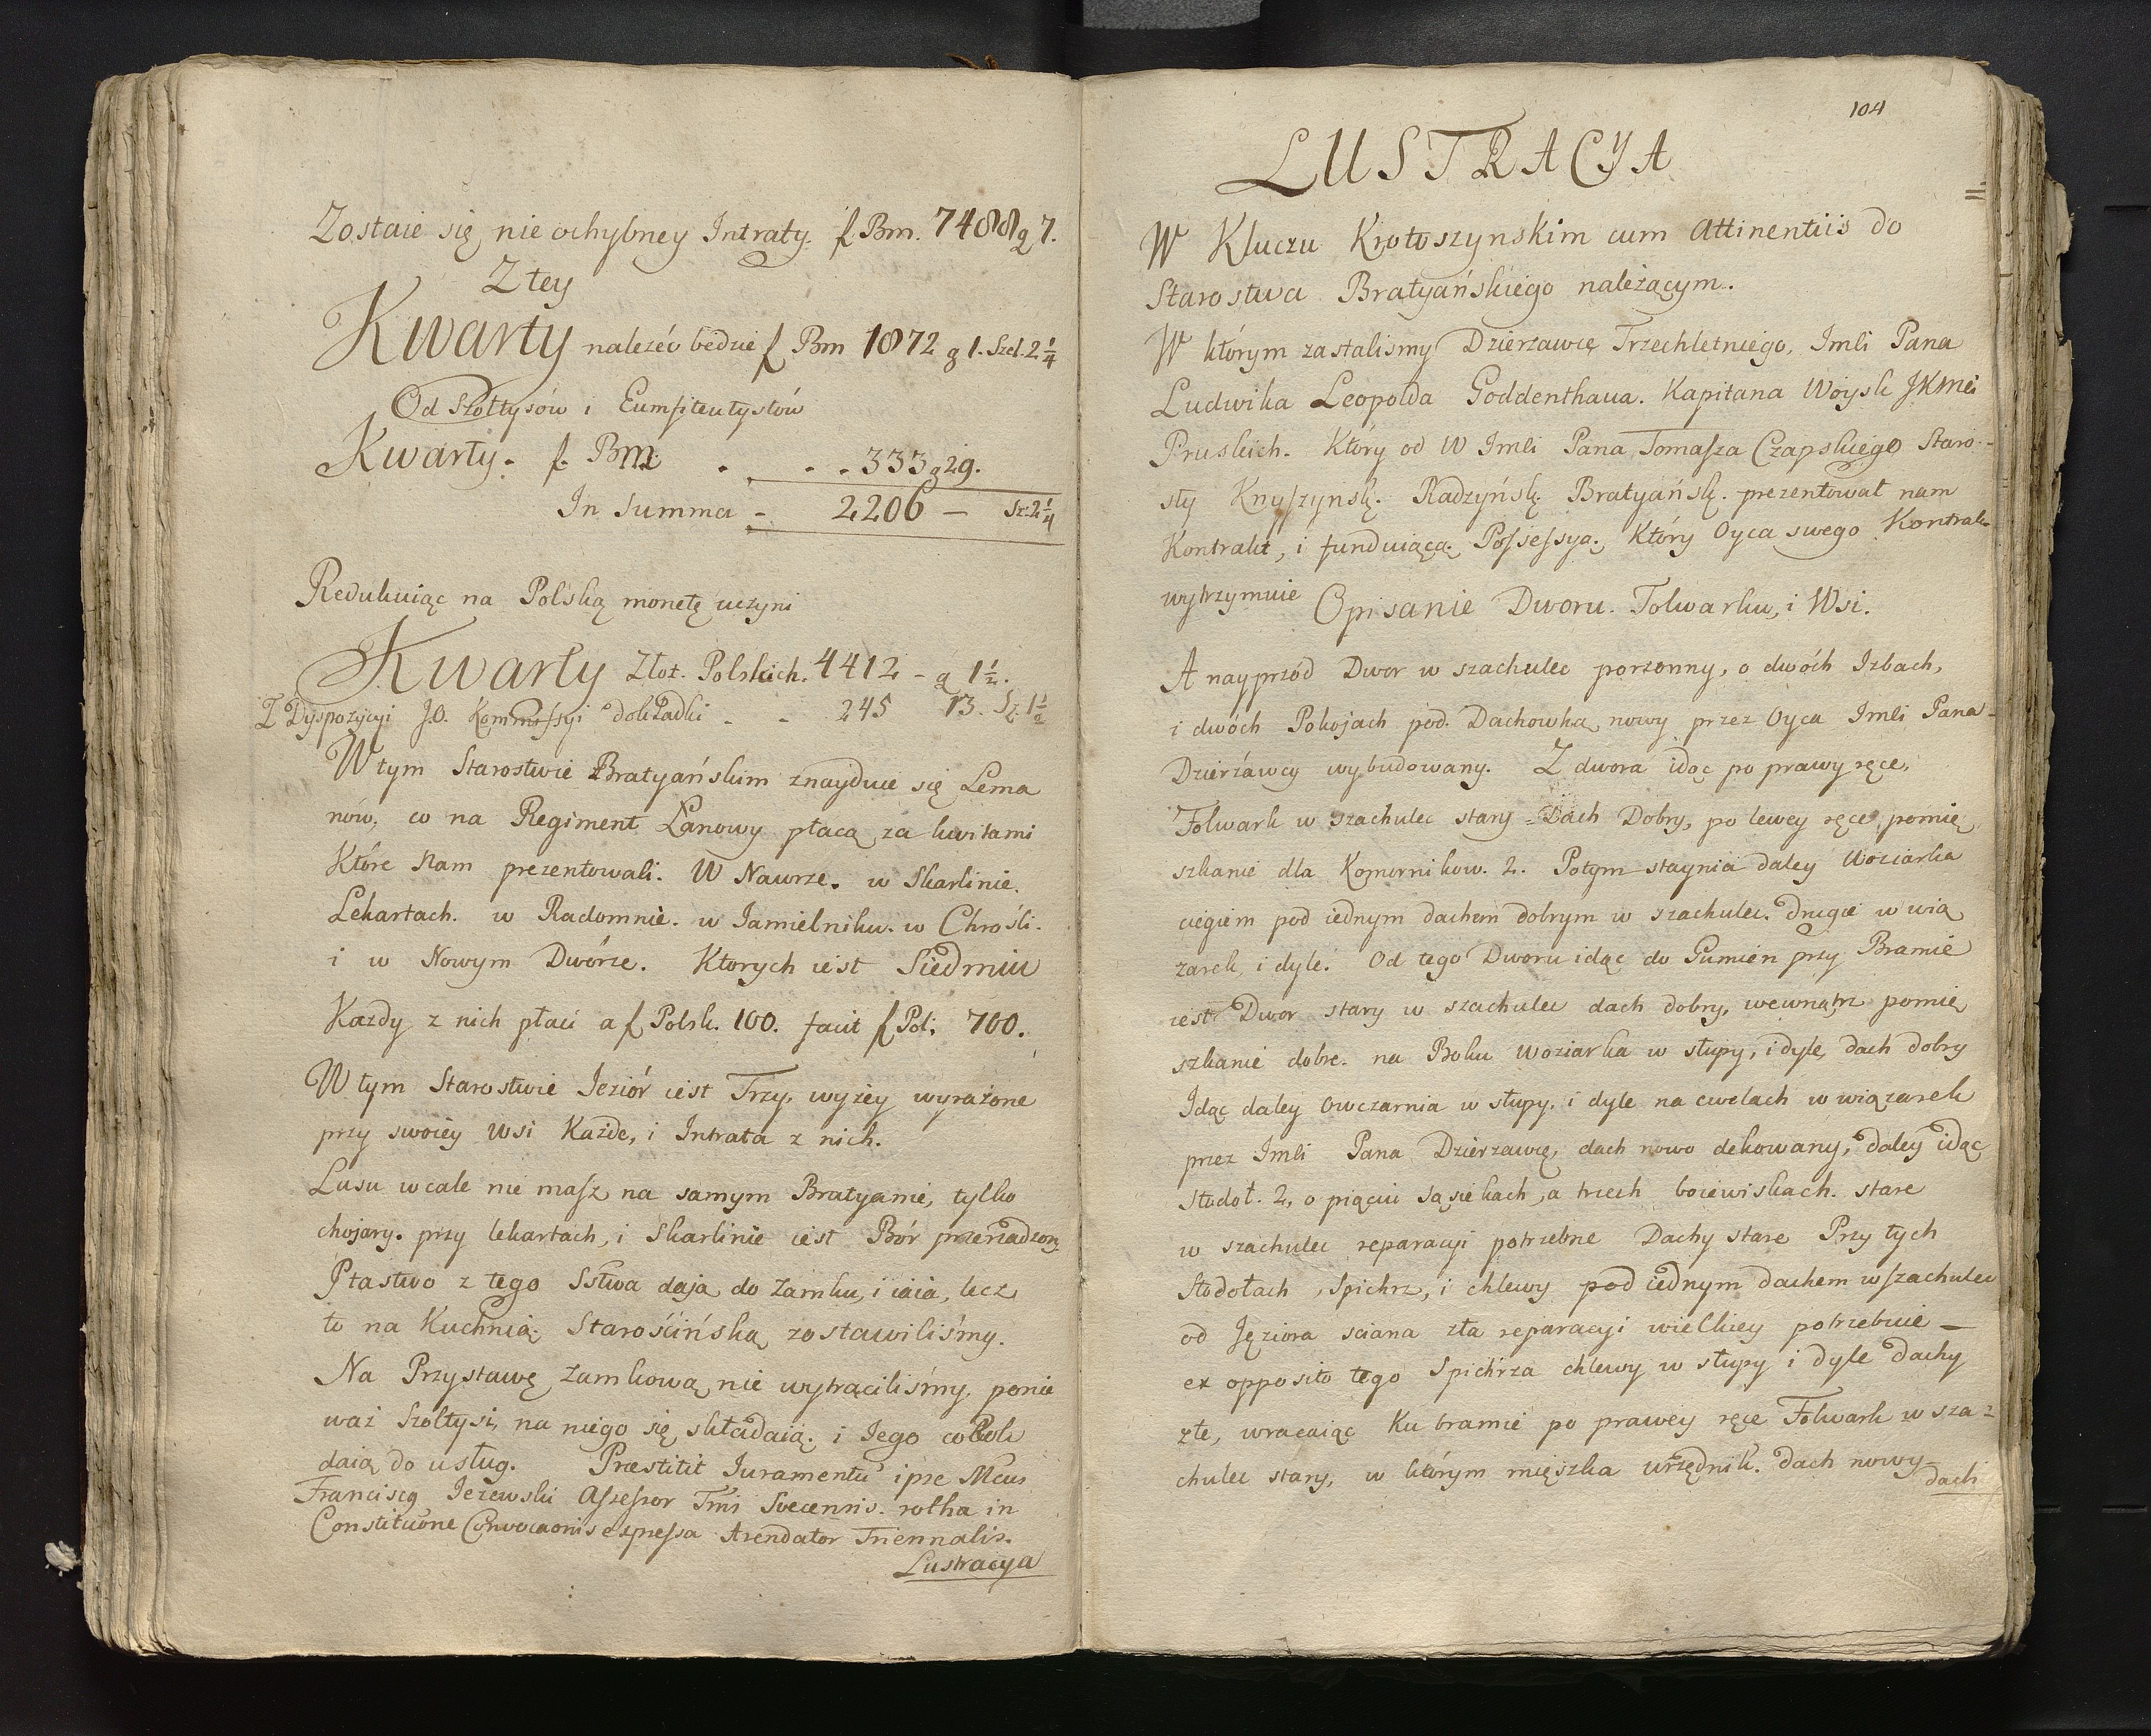 Zostaie się nie ochybney Intraty. f Bm. 7488 g 7.
Z tey
Kwarty należéć bedzie f Bm 1872 g 1. Szel. 2 1/4
Od Szołtysów i Eumfiteutystów
Kwarty. f. Bm . . . 333 g 29.
In Summa - 2206 — Sz: 2 1/4
Redukuiąc na Polską monetę uczyni
Kwarty Złot. Polskich. 4412 - g 1 1/2.
Z Dyspozycyi J.O. Kommissyi dokładki - - 245 13. Sz. 1 1/2
W tym Starostwie Bratyańskim znayduie się Lema
nów, co na Regiment Łanowy płacą za kwitami
Które Nam prezentowali. W Nawrze. w Skarlinie.
Lekartach. w Radomnie. w Jamielniku. w Chrośli.
i w Nowym Dwórze. Ktorych iest Siedmiu
Kazdy z nich płaci a f Polsk. 100. facit f Pol: 700.
W tym Starostwie Jeziór iest Trzy, wyżey wyrażone
przy swoiey Wsi Każde, i Intrata z nich.
Lasu wcale nie masz na samym Bratyanie, tylko
chojary. przy lekartach, i Skarlinie iest Bór przerzadzony
Ptastwo z tego Sstwa dają do Zamku, i iaia, lecz
to na Kuchnią Starościńską zostawiliśmy.
Na Przystawę Zamkową nie wytrąciliśmy, ponie
waż Szołtysi, na niego się składaią. i Jego co Rok
daią do usług. Præstitit Juramentũ ipse Mcus
Franciscq Jeżewski Assessor Tris Svecensis. rotha in
Constitutione Convocaonis expressa Arendator Triennalis.
Lustracya
104
LUSTRACYA
W Kluczu Krotoszynskim cum Attinentiis do
Starostwa Bratyańskiego należącym.
W którym zastalismy Dzierzawcę Trzechletniego, Imći Pana
Ludwika Leopolda Goddenthaua. Kapitana Woysk JKMći
Pruskich. Który od W Imći Pana Tomasza Czapskiego Staro-
sty Knyszynsk. Radzyńsk. Bratyańsk. prezentował nam
Kontrakt, i funduiącą Possessyą. Który Oyca swego Kontrak
wytrzymuie
Opisanie Dworu. Folwarku, i Wsi.
A nayprzód Dwor w szachulec porzonny, o dwóch Izbach,
i dwóch Pokojach pod Dachowką nowy przez Oyca Imći Pana
Dzierżawcy wybudowany. Z dwora idąc po prawy ręce,
Folwark w szachulec stary - Dach Dobry, po lewey ręce pomię
szkanie dla Komornikow. 2. Potym staynia daley Woziarka
ciegiem pod iednym dachem dobrym w szachulec. drugie w wią
zarek, i dyle. Od tego Dworu idąc do Gumien przy Bramie
iest Dwor stary w szachulec dach dobry, wewnątrz pomię
szkanie dobre. na Boku Woziarka w słupy, i dyle, dach dobry
Idąc daley Owczarnia w słupy, i dyle na cwelach w wiązarek
przez Imći Pana Dzierzawcę, dach nowo dekowany, daley idąc
Stodoł. 2, o pięciu sąsiekach, a trzech boiewiskach. stare
w szachulec reparacyi potrzebne Dachy stare Przy tych
Stodołach, Spichrz, i chlewy pod iednym dachem w szachulec
od Jęziora sciana zła reparacyi wielkiey potrzebuie —
ex opposito tego Spichrza chlewy w słupy i dyle dachy
złe, wracaiąc Ku bramie po prawey ręce Folwark w sza-
chulec stary, w którym mięszka urzędnik. dach nowy
dach